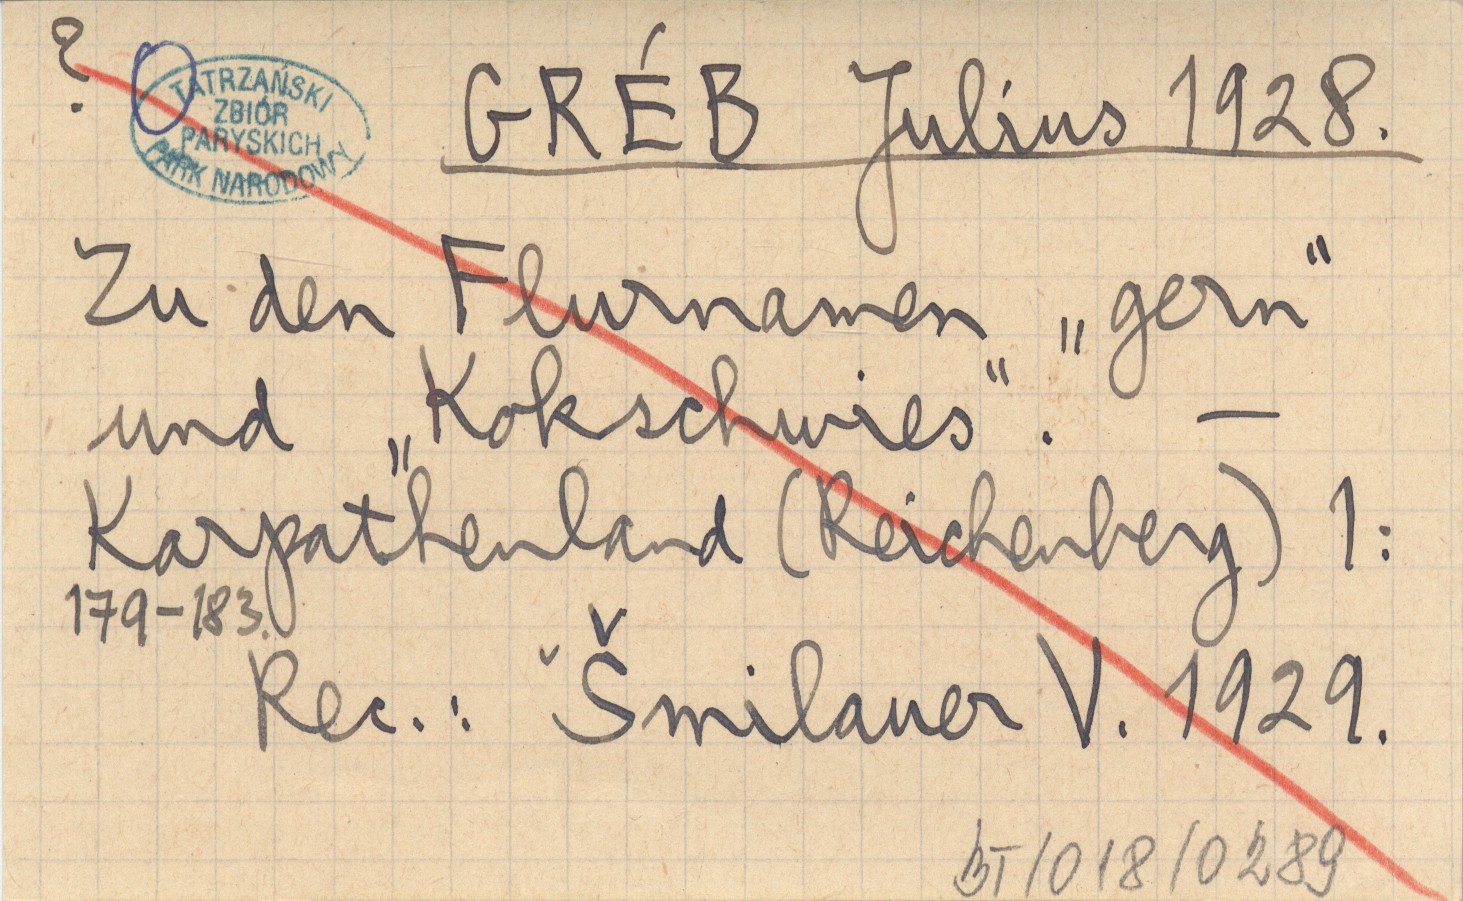 ?
TATRZAŃSKI
ZBIÓR
PARYSKICH
PARK NARODOWY
GRÉB Julius 1928.
Zu den Flurnamen „gern“
und „Kokschwies“. —
Karpathenland (Reichenberg) 1:
179-183.
Rec.: Šmilauer V. 1929.
BT/018/0289